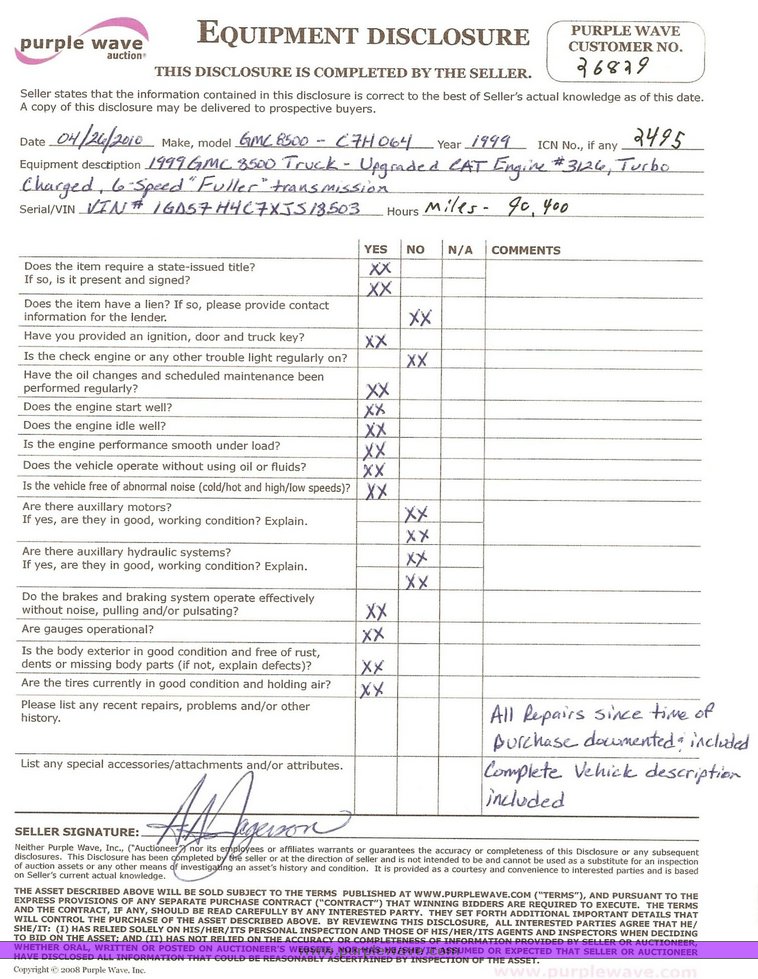 purple wave
auction®
EQUIPMENT DISCLOSURE
THIS DISCLOSURE IS COMPLETED BY THE SELLER.
PURPLE WAVE
CUSTOMER NO.
26829
Seller states that the information contained in this disclosure is correct to the best of Seller's actual knowledge as of this date.
A copy of this disclosure may be delivered to prospective buyers.
Date 04/26/2010 Make, model GMC 8500 - C7H064 Year 1999 ICN No., if any 2495
Equipment description 1999 GMC 8500 Truck - Upgraded CAT Engine #3126, Turbo
Charged, 6-Speed "Fuller" transmission
Serial/VIN VIN# 1GDS7H4C7XJS18503 Hours Miles - 90,400
YES NO N/A COMMENTS
Does the item require a state-issued title? XX
If so, is it present and signed? XX
Does the item have a lien? If so, please provide contact
information for the lender. XX
Have you provided an ignition, door and truck key? XX
Is the check engine or any other trouble light regularly on? XX
Have the oil changes and scheduled maintenance been
performed regularly? XX
Does the engine start well? XX
Does the engine idle well? XX
Is the engine performance smooth under load? XX
Does the vehicle operate without using oil or fluids? XX
Is the vehicle free of abnormal noise (cold/hot and high/low speeds)? XX
Are there auxillary motors? XX
If yes, are they in good, working condition? Explain. XX
Are there auxillary hydraulic systems? XX
If yes, are they in good, working condition? Explain. XX
Do the brakes and braking system operate effectively
without noise, pulling and/or pulsating? XX
Are gauges operational? XX
Is the body exterior in good condition and free of rust,
dents or missing body parts (if not, explain defects)? XX
Are the tires currently in good condition and holding air? XX
Please list any recent repairs, problems and/or other
history.
All Repairs since time of
purchase documented & included
List any special accessories/attachments and/or attributes.
Complete Vehicle description
included
SELLER SIGNATURE: Jagerson
Neither Purple Wave, Inc., ("Auctioneer") nor its employees or affiliates warrants or guarantees the accuracy or completeness of this Disclosure or any subsequent
disclosures. This Disclosure has been completed by the seller or at the direction of seller and is not intended to be and cannot be used as a substitute for an inspection
of auction assets or any other means of investigating an asset's history and condition. It is provided as a courtesy and convenience to interested parties and is based
on Seller's current actual knowledge.
THE ASSET DESCRIBED ABOVE WILL BE SOLD SUBJECT TO THE TERMS PUBLISHED AT WWW.PURPLEWAVE.COM ("TERMS"), AND PURSUANT TO THE
EXPRESS PROVISIONS OF ANY SEPARATE PURCHASE CONTRACT ("CONTRACT") THAT WINNING BIDDERS ARE REQUIRED TO EXECUTE. THE TERMS
AND THE CONTRACT, IF ANY, SHOULD BE READ CAREFULLY BY ANY INTERESTED PARTY. THEY SET FORTH ADDITIONAL IMPORTANT DETAILS THAT
WILL CONTROL THE PURCHASE OF THE ASSET DESCRIBED ABOVE. BY REVIEWING THIS DISCLOSURE, ALL INTERESTED PARTIES AGREE THAT HE/
SHE/IT: (I) HAS RELIED SOLELY ON HIS/HER/ITS PERSONAL INSPECTION AND THOSE OF HIS/HER/ITS AGENTS AND INSPECTORS WHEN DECIDING
TO BID ON THE ASSET; AND (II) HAS NOT RELIED ON THE ACCURACY OR COMPLETENESS OF INFORMATION PROVIDED BY SELLER OR AUCTIONEER,
WHETHER ORAL, WRITTEN OR POSTED ON AUCTIONEER'S WEBSITE, NOR HAS HE/SHE/IT ASSUMED OR EXPECTED THAT SELLER OR AUCTIONEER
HAVE DISCLOSED ALL INFORMATION THAT COULD BE REASONABLY ASCERTAINED BY INSPECTION OF THE ASSET.
Copyright © 2008 Purple Wave, Inc.
www.purplewave.com